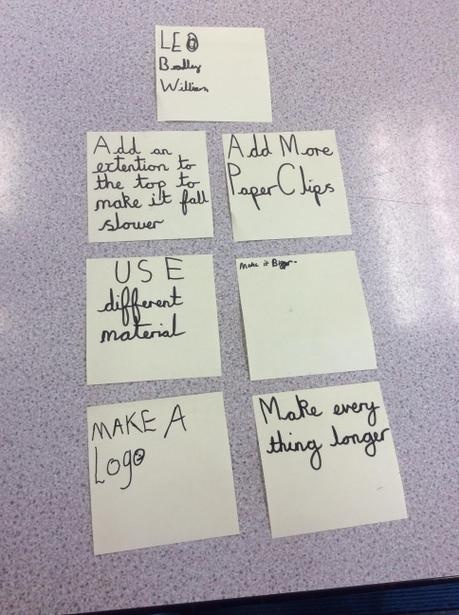 LEO
Bradley
William
Add an
extention to
the top to
make it fall
slower
Add More
Paper Clips
USE
different
material
Make it Bigger.
MAKE A
Logo
Make every
thing longer